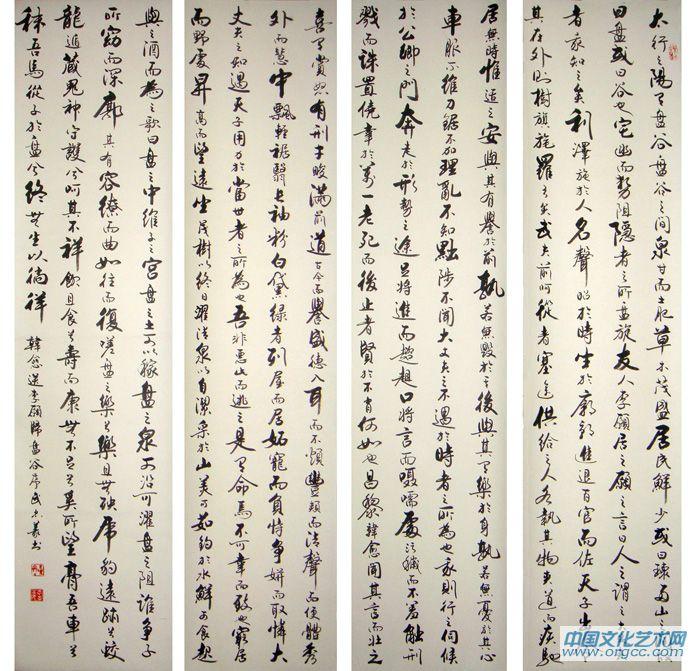 太行之陽有盤谷盤谷之間泉甘而土肥草木茂盛居民鮮少或曰環兩山之
曰盤或曰谷也宅幽而勢阻隱者之所盤旋友人李愿居之愿之言曰人之謂大
者我知之矣利澤施於人名聲昭於時坐於廟朝進退百官而佐天子出
其在外則樹旗旄羅弓矢武夫前呵從者塞途供給之人各執其物夾道而疾馳
喜有賞怒有刑才畯滿前道古今而譽盛德入耳而不煩豐頰而清聲而便體秀
外而慧中飄輕裾翳長袖粉白黛綠者列屋而居妬寵而負恃爭妍而取憐大
丈夫之知遇天子用力於當世者之所為也吾非惡此而逃之是有命焉不可幸而致也窮居
而野處昇高而望遠坐茂樹以終日濯清泉以自潔采於山美可茹釣於水鮮可食起
居無時惟適之安與其有譽於前孰若無毀於其後與其有樂於身孰若無憂於其心
車服不維刀鋸不加理亂不知黜陟不聞大丈夫之不遇於時者之所為也我則行之伺候
於公卿之門奔走於形勢之途足將進而趑趄口將言而囁嚅處污穢而不羞觸刑
戮而誅置僥幸於萬一老死而後止者賢於不肖何如也昌黎韓愈聞其言而壯之
與之酒而為之歌曰盤之中維子之宮盤之土可以稼盤之泉可沿可濯盤之阻誰爭子
所窈而深廓其有容繚而曲如往而復嗟盤之樂兮樂且無殃虎豹遠跡兮蛟
龍遁藏鬼神守護兮呵其不祥飲且食兮壽而康無不足兮奚所望膏吾車兮
秣吾馬從子於盤兮終吾生以徜徉
韓愈送李愿歸盤谷序
中国文化艺术网
www.orgcc.com